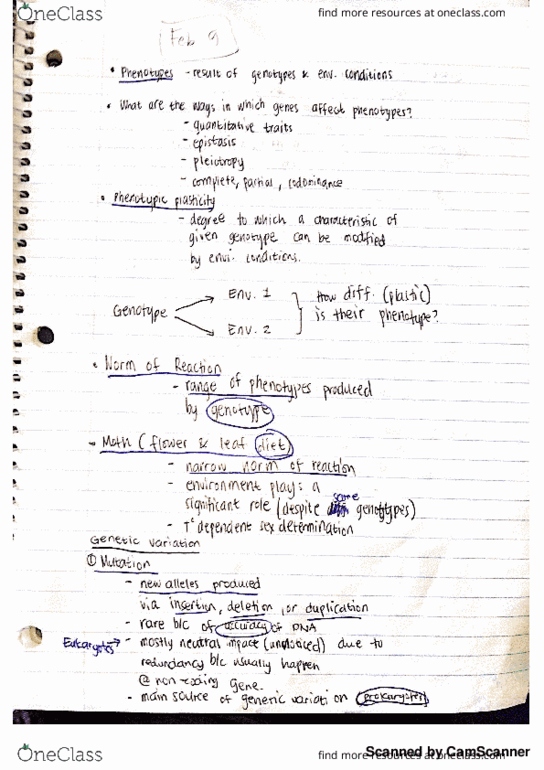 OneClass
find more resources at oneclass.com
Feb 9
• Phenotypes - result of genotypes & env. conditions
• What are the ways in which genes affect phenotypes?
- quantitative traits
- epistasis
- pleiotropy
- complete, partial, codominance
• Phenotypic plasticity
- degree to which a characteristic of
given genotype can be modified
by envi. conditions.
Genotype
Env. 1
Env. 2
How diff. (plastic)
is their phenotype?
• Norm of Reaction
- range of phenotypes produced
by genotype
Moth (flower & leaf diet)
- narrow norm of reaction
- environment plays a
significant role (despite same genotypes)
- T° dependent sex determination
Genetic variation
① Mutation
- new alleles produced
via insertion, deletion, or duplication
- rare b/c of accuracy of DNA
Eukaryotes → - mostly neutral impact (unnoticed) due to
redundancy b/c usually happen
@ non-coding gene.
- main source of generic variation (prokaryotes)
OneClass
find more resources at oneclass.com
Scanned by CamScanner